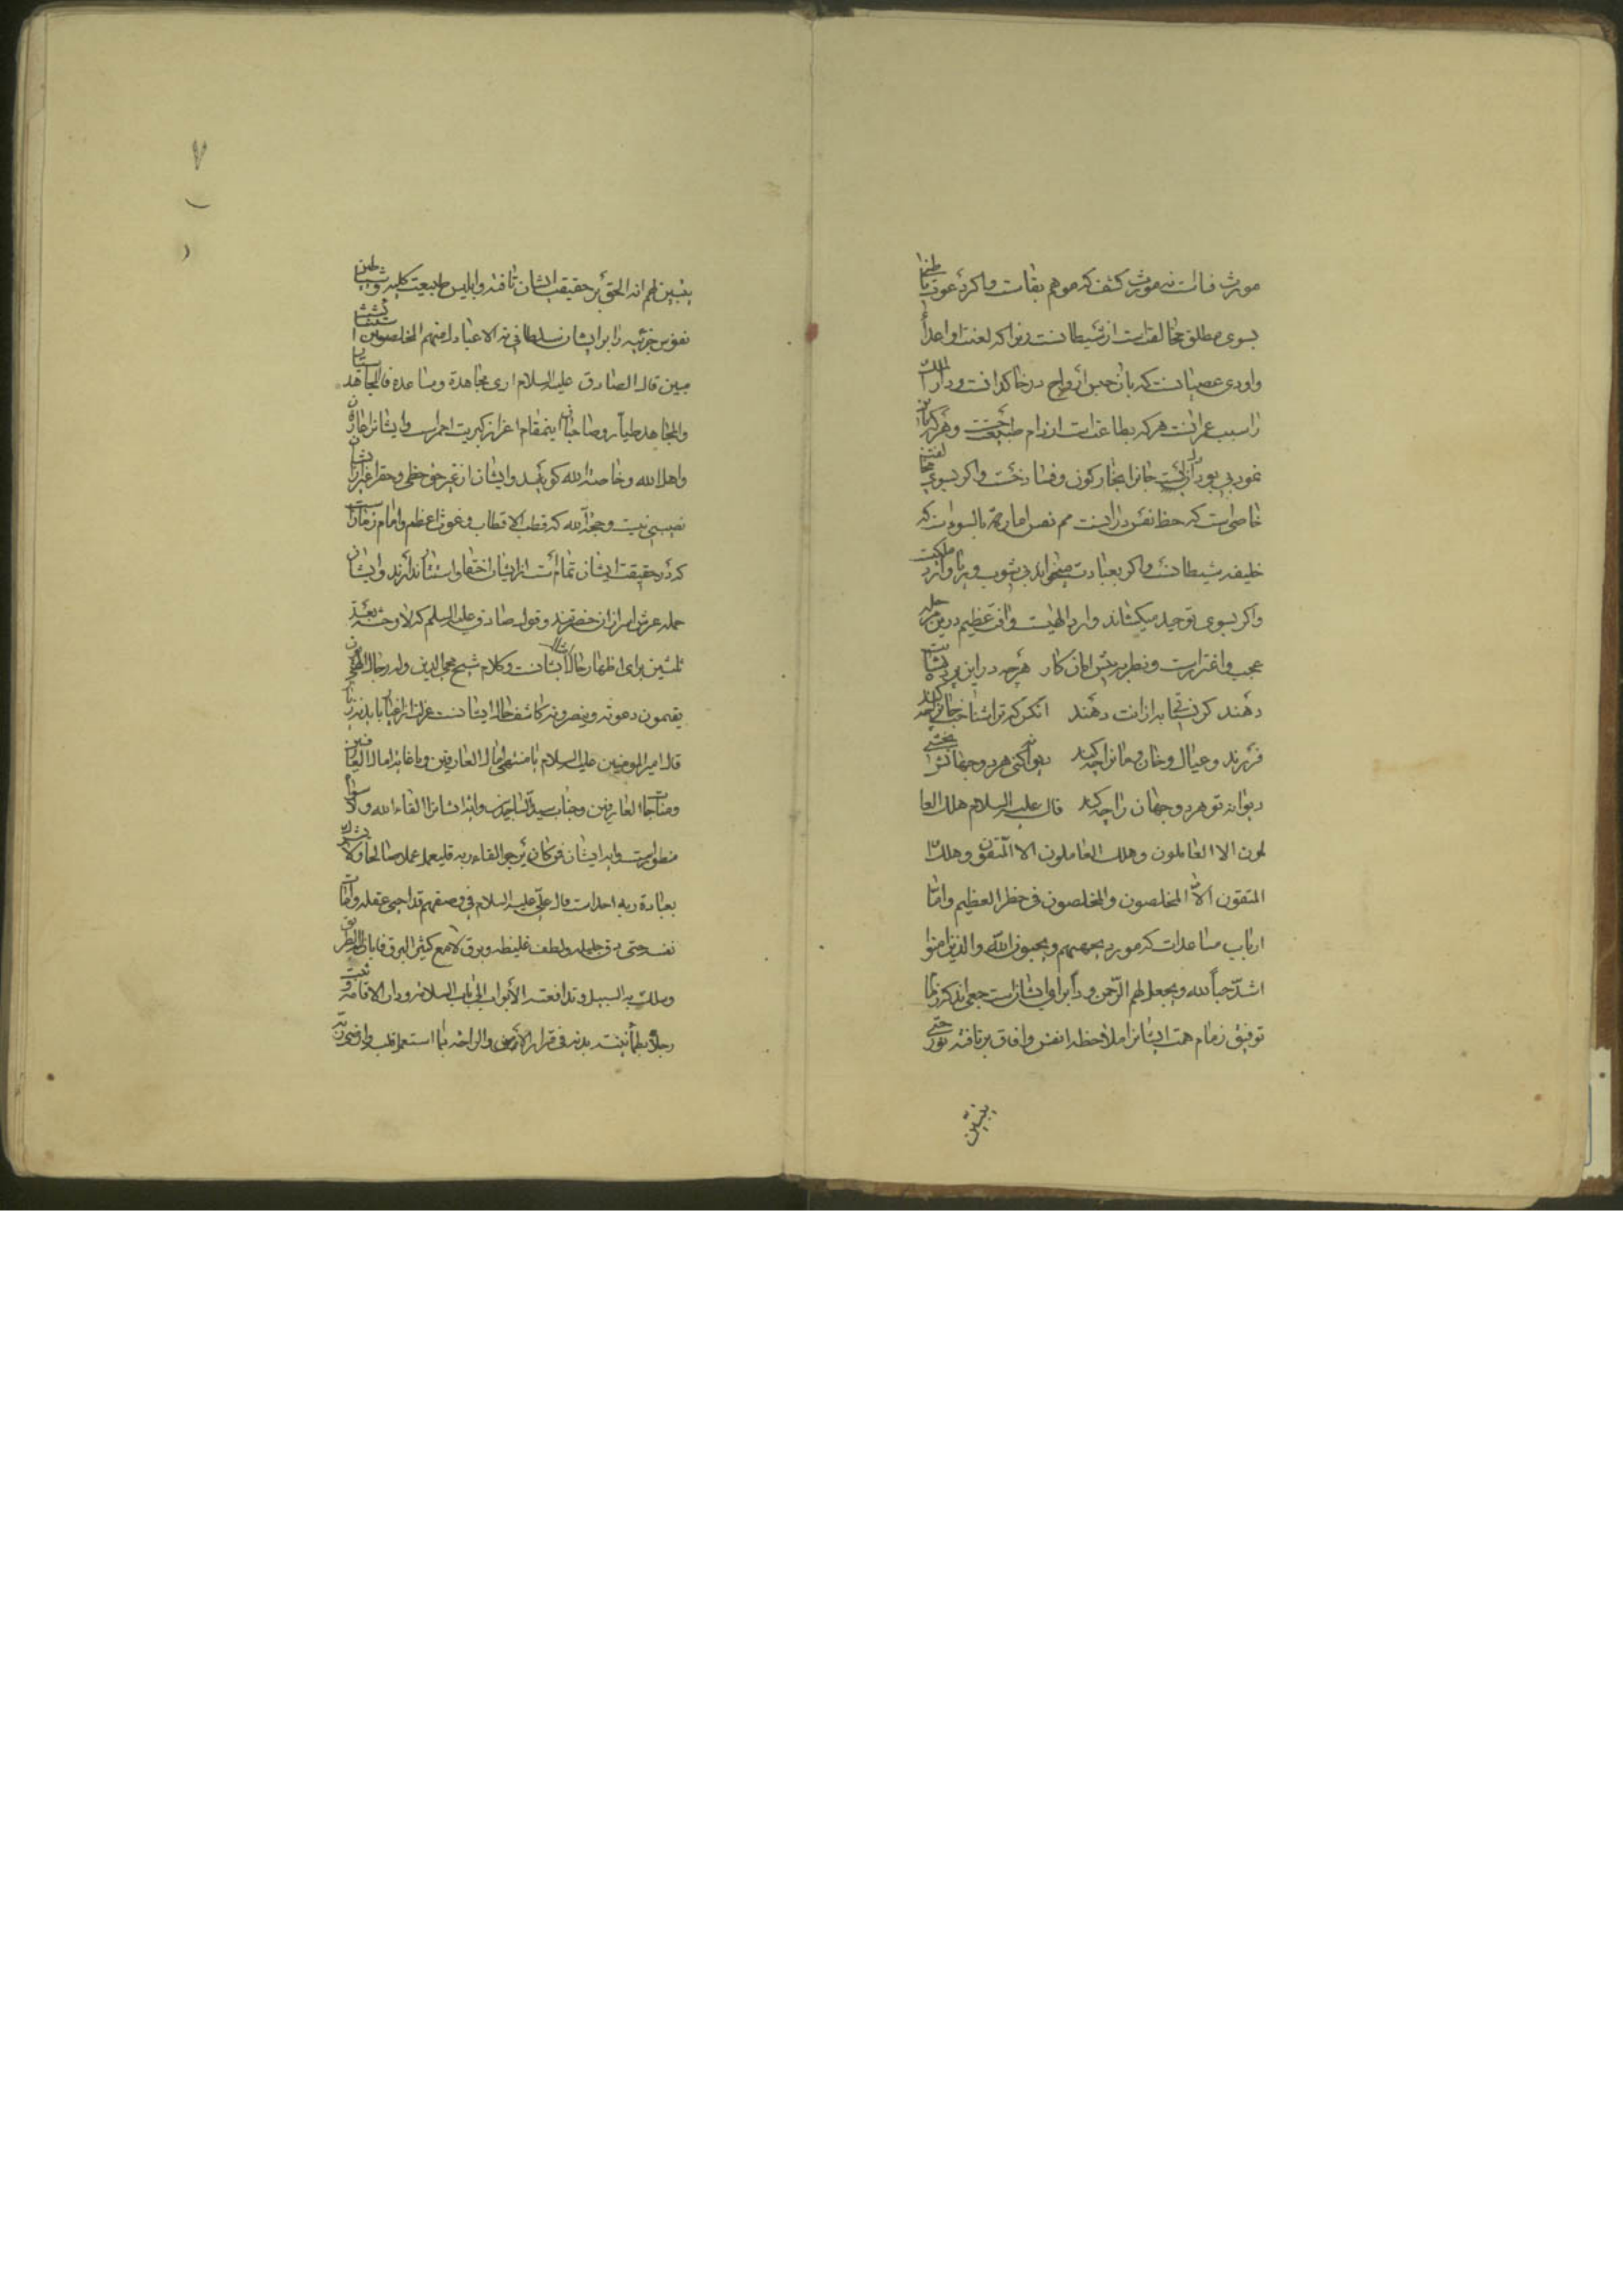 مورث فنا است نه مورث کشف که موهم بقاست واکر دعوت باطنها
بسوی مطلق مخالفتست از شیطانست زیرا که لعنت او اعدا
واودی عصیانست که بان حبس ارواح در خاکدانست ودار الملک
را سبب عمرانست هرکه بطاعت است از دام طبیعت جست وهرکه
نمود بی بود جانرا بخار کون وفساد خست واکر بسوی
خاصی است که حظ نفس در انست هم نفس اماره بالسوء است که
خلیفه شیطانست واکر بعبادت میخواند بی شوب وریا وارد ملکیست
واکر بسوی توحید میکشاند وارد الهیست وافت عظیم درین مرحله
عجب واغترارست ونظر بر پیش امدن کار هرچه در این پرده نشانت
دهند کر نستانی به از انت دهند انکس که ترا شناخت جانرا چه کند
فرزند وعیال وخان ومانرا چه کند دیوانه کنی هر دو جهانش بخشی
دیوانه تو هر دو جهان را چه کند قال علیه السلام هلک العا
لمون الا العاملون وهلک العاملون الا المتقون وهلک
المتقون الا المخلصون والمخلصون فی خطر العظیم واما
ارباب مساعدات که مورد یحبهم ویحبون الله والذین امنوا
اشد حبا لله ویجعل لهم الرحمن ودا برای ایشانست جمعی اند که
توفیق زمام همت ایشانرا ملاحظه انفس وافاق برتافته نور حتی
یتبین
۷
یتبین لهم انه الحق بر حقیقت ایشان تافته وابلیس طبیعت کلیه وشیاطین
نفوس جزئیه را بر ایشان سلطانی نه الا عبادک منهم المخلصین
مبین قال الصادق علیه السلام اری مجاهدة ومساعدة فالمجاهد
والمجاهد طیار وصاحبان اینمقام اعز از کبریت احمر است وایشانرا
واهل الله وخاصة الله کویند وایشان از غیر حق حظی وحق را غیر ایشان
نصیبی نیست وحجة الله که قطب الاقطاب وغوث اعظم وامام زمان است
که در حقیقت ایشان تمام است از ایشان اختفا واستتار ندارند وایشان
حمله عرش امر از ان حضرتند وقول صادق علیه السلم که لا وحشة بعد
ثلثین برای اظهار حال امثال ایشانست وکلام شیخ محی الدین وله رجال الهیون
یقیمون دعوته وینصرونه کاشف حال ایشانست
قال امیر المومنین علیه السلام یا منتهی امال العارفین ویا غایة امال العارفین
ومناجات العارفین وجناب سید الساجدین ایشانرا القاء الله ولا سواه
منظور است وایه ایشان فمن کان یرجو القاء ربه فلیعمل عملا صالحا ولا یشرک
بعبادة ربه احدا است قال علی علیه السلام فی وصفهم قد احیی عقله وامات
نفسه حتی دق جلیله ولطف غلیظه وبرق لامع کثیر البرق فابان الطریق
وسلک به السبیل وتدافعته الابواب الی باب السلامة ودار الاقامة وثبت
رجلاه بطمأنینة بدنه فی قرار الامن والراحة بما استعمل قلبه وارضی ربه